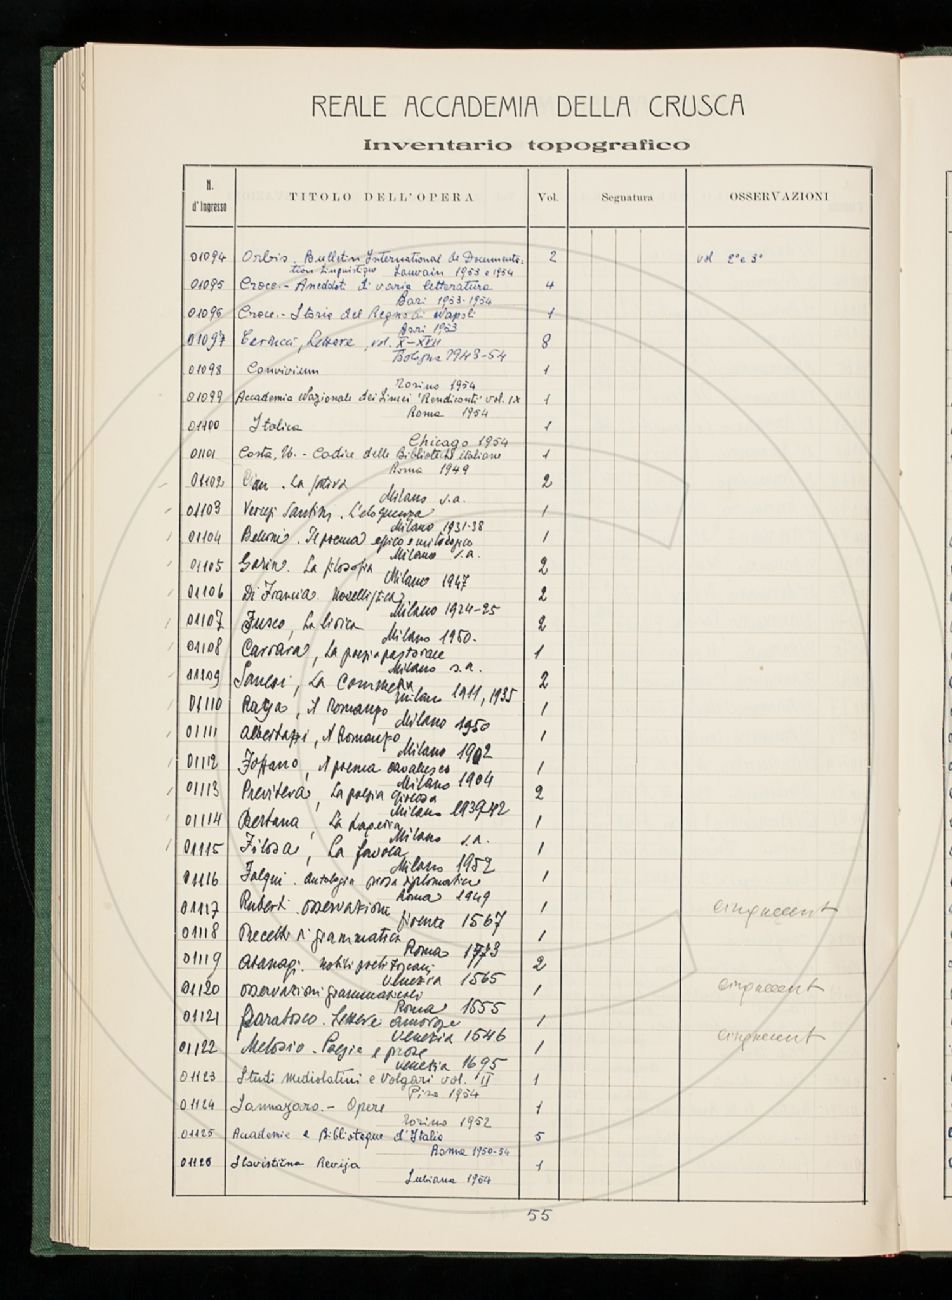 REALE ACCADEMIA DELLA CRUSCA
Inventario topografico
N. d'Ingresso TITOLO DELL'OPERA Vol. Segnatura OSSERVAZIONI
01094 Orbis. Bulletin International de Documenta- 2 vol 2° e 3°
tion Linguistique Louvain 1953 e 1954
01095 Croce.- Aneddoti di varia letteratura 4
Bari 1953-1954
01096 Croce.- Storia del Regno di Napoli 1
Bari 1953
01097 Carducci, Lettere, vol. X-XVII 8
Bologna 1943-54
01098 Convivium 1
Torino 1954
01099 Accademia Nazionale dei Lincei "Rendiconti" vol. IX 1
Roma 1954
01100 Italica 1
Chicago 1954
01101 Costa, - Codice delle Biblioteche italiane 1
Roma 1949
01102 Cian. La satira 2
Milano s.a.
01103 Santini. L'eloquenza 1
Milano 1931-38
01104 Belloni. Il poema epico e mitologico 1
Milano s.a.
01105 Garin. La filosofia 2
Milano 1947
01106 Di Francia Novellistica 2
Milano 1924-25
01107 Fusco, La lirica 2
Milano 1950.
01108 Carrara, La poesia pastorale 1
Milano s.a.
01109 Sanesi, La Commedia 2
Milano 1911, 1935
01110 Raya, il Romanzo 1
Milano 1950
01111 Albertazzi, il Romanzo 1
Milano 1902
01112 Foffano, il poema cavalleresco 1
Milano 1904
01113 Previtera, La poesia giocosa 2
Milano 1939-42
01114 Bertana, La tragedia 1
Milano s.a.
01115 Filosa, La favola 1
Milano 1952
01116 Falqui. Antologia prosa diplomatica 1
Roma 1949
01117 Ruberti osservazione 1 cinquecent
Firenze 1567
01118 Precetti di grammatica 1
Roma 1773
01119 Atanagi. nobili poeti toscani 2
Venezia 1565
01120 osservazioni grammaticali 1 cinquecent
Roma 1555
01121 Parabosco. Lettere amorose 1
Venezia 1546 cinquecent
01122 Melosio. Poesie e prose 1
Venezia 1695
01123 Studi mediolatini e Volgari vol. II 1
Pisa 1954
01124 Sannazaro.- Opere 1
Torino 1952
01125 Accademie e Biblioteque d'Italia 5
Roma 1950-54
01126 Slavistična Revija 1
Lubiana 1954
55